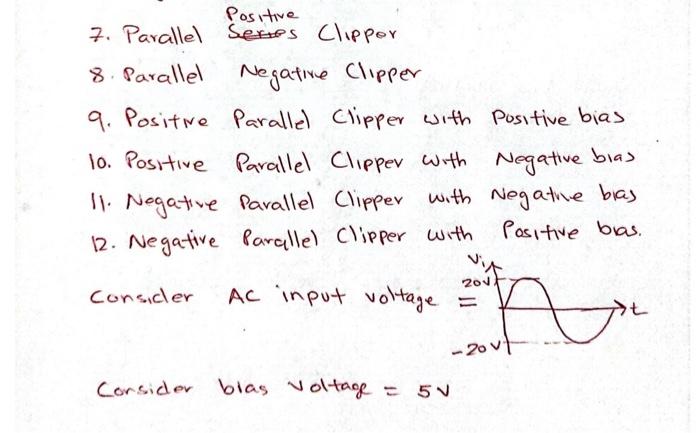 7. Parallel Positive Clipper
8. Parallel Negative Clipper
9. Positive Parallel Clipper with Positive bias
10. Positive Parallel Clipper with Negative bias
11. Negative Parallel Clipper with Negative bias
12. Negative Parallel Clipper with Positive bias.
Consider AC input voltage =
Vi
20V
t
-20V
Consider bias voltage = 5V